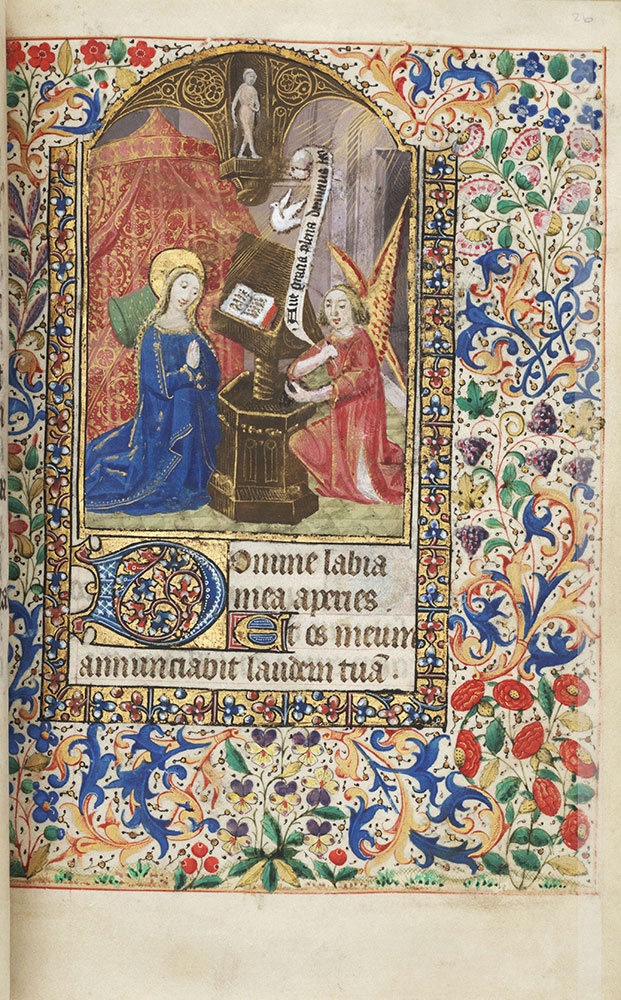 26
Aue gracia plena dominus te
Domine labia
mea aperies
Et os meum
annunciabit laudem tuã.